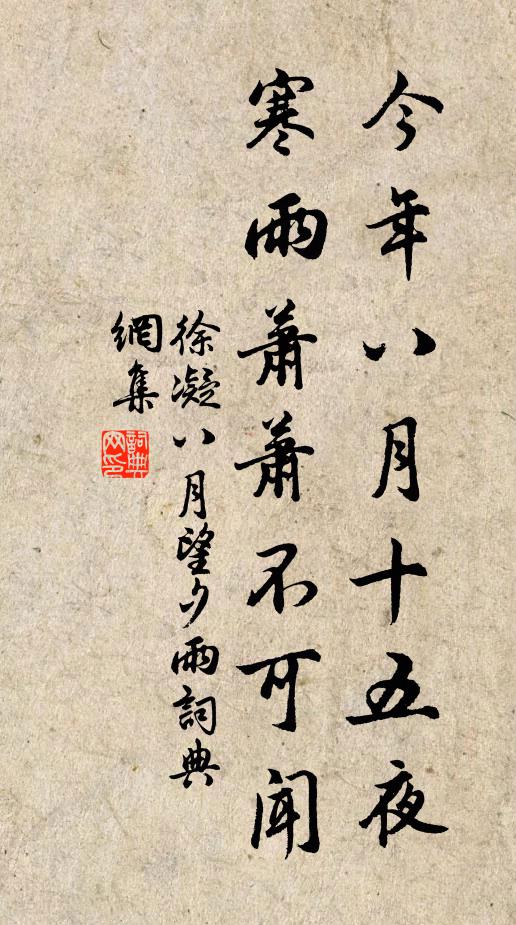 今年八月十五夜
寒雨蕭蕭不可聞
徐凝八月望夕雨詞典
網集
詞典
网印